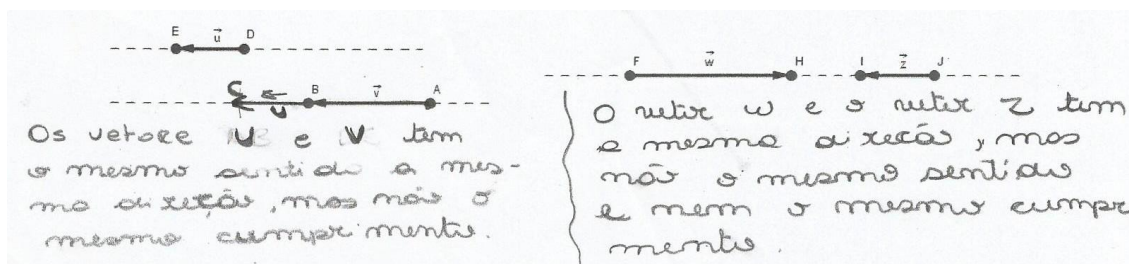 E D
u
C u B v A
Os vetore u e v tem
o mesmo sentido a mes-
ma direção, mas não o
mesmo cumprimento.
F w H I z J
O vetor w e o vetor z tem
a mesma direção, mas
não o mesmo sentido
e nem o mesmo cumpr
mento.